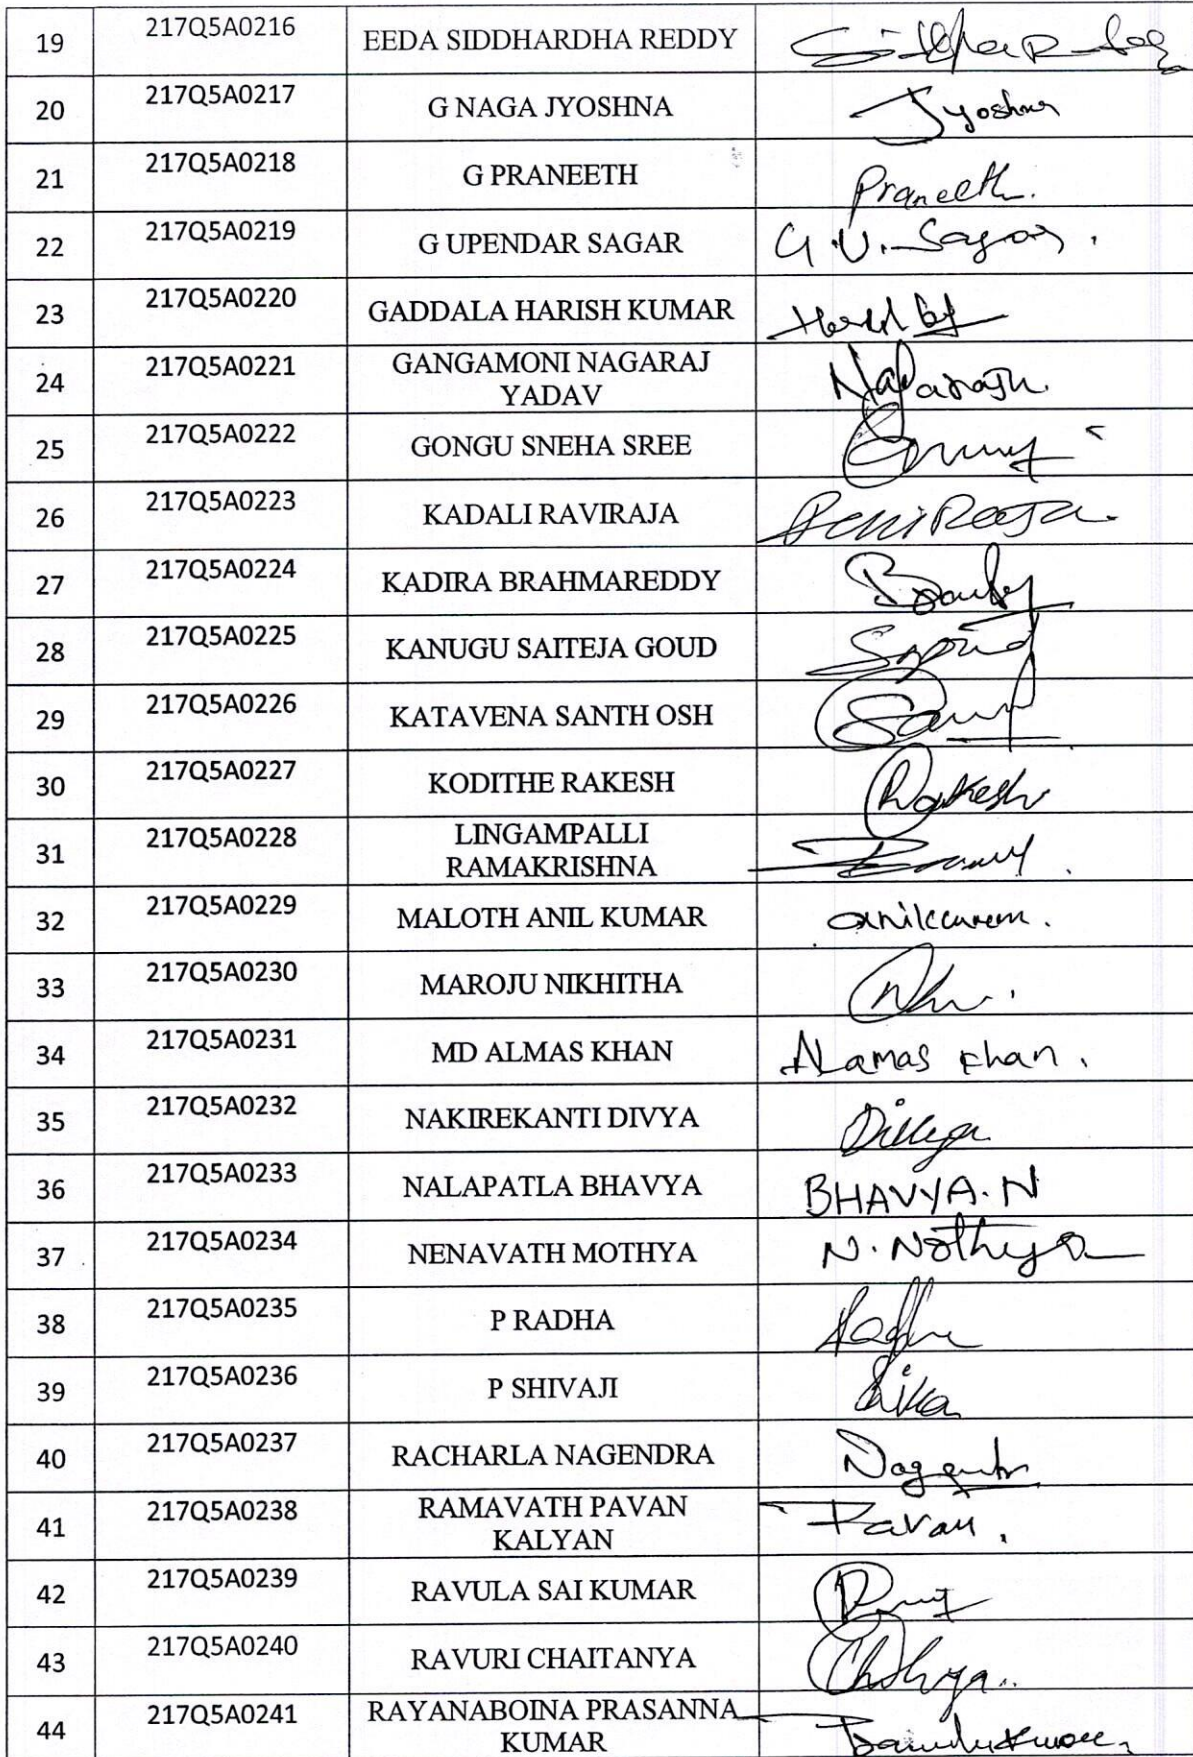 19 217Q5A0216 EEDA SIDDHARDHA REDDY
20 217Q5A0217 G NAGA JYOSHNA Jyoshna
21 217Q5A0218 G PRANEETH Praneeth.
22 217Q5A0219 G UPENDAR SAGAR G.U. Sagar.
23 217Q5A0220 GADDALA HARISH KUMAR
24 217Q5A0221 GANGAMONI NAGARAJ
YADAV Nagaraju.
25 217Q5A0222 GONGU SNEHA SREE
26 217Q5A0223 KADALI RAVIRAJA RaviRaja
27 217Q5A0224 KADIRA BRAHMAREDDY
28 217Q5A0225 KANUGU SAITEJA GOUD
29 217Q5A0226 KATAVENA SANTH OSH
30 217Q5A0227 KODITHE RAKESH Rakesh
31 217Q5A0228 LINGAMPALLI
RAMAKRISHNA
32 217Q5A0229 MALOTH ANIL KUMAR
33 217Q5A0230 MAROJU NIKHITHA
34 217Q5A0231 MD ALMAS KHAN Alamas khan.
35 217Q5A0232 NAKIREKANTI DIVYA Divya
36 217Q5A0233 NALAPATLA BHAVYA BHAVYA. N
37 217Q5A0234 NENAVATH MOTHYA N. Nothya
38 217Q5A0235 P RADHA Radha
39 217Q5A0236 P SHIVAJI Shiva
40 217Q5A0237 RACHARLA NAGENDRA
41 217Q5A0238 RAMAVATH PAVAN
KALYAN Pavan.
42 217Q5A0239 RAVULA SAI KUMAR
43 217Q5A0240 RAVURI CHAITANYA
44 217Q5A0241 RAYANABOINA PRASANNA
KUMAR